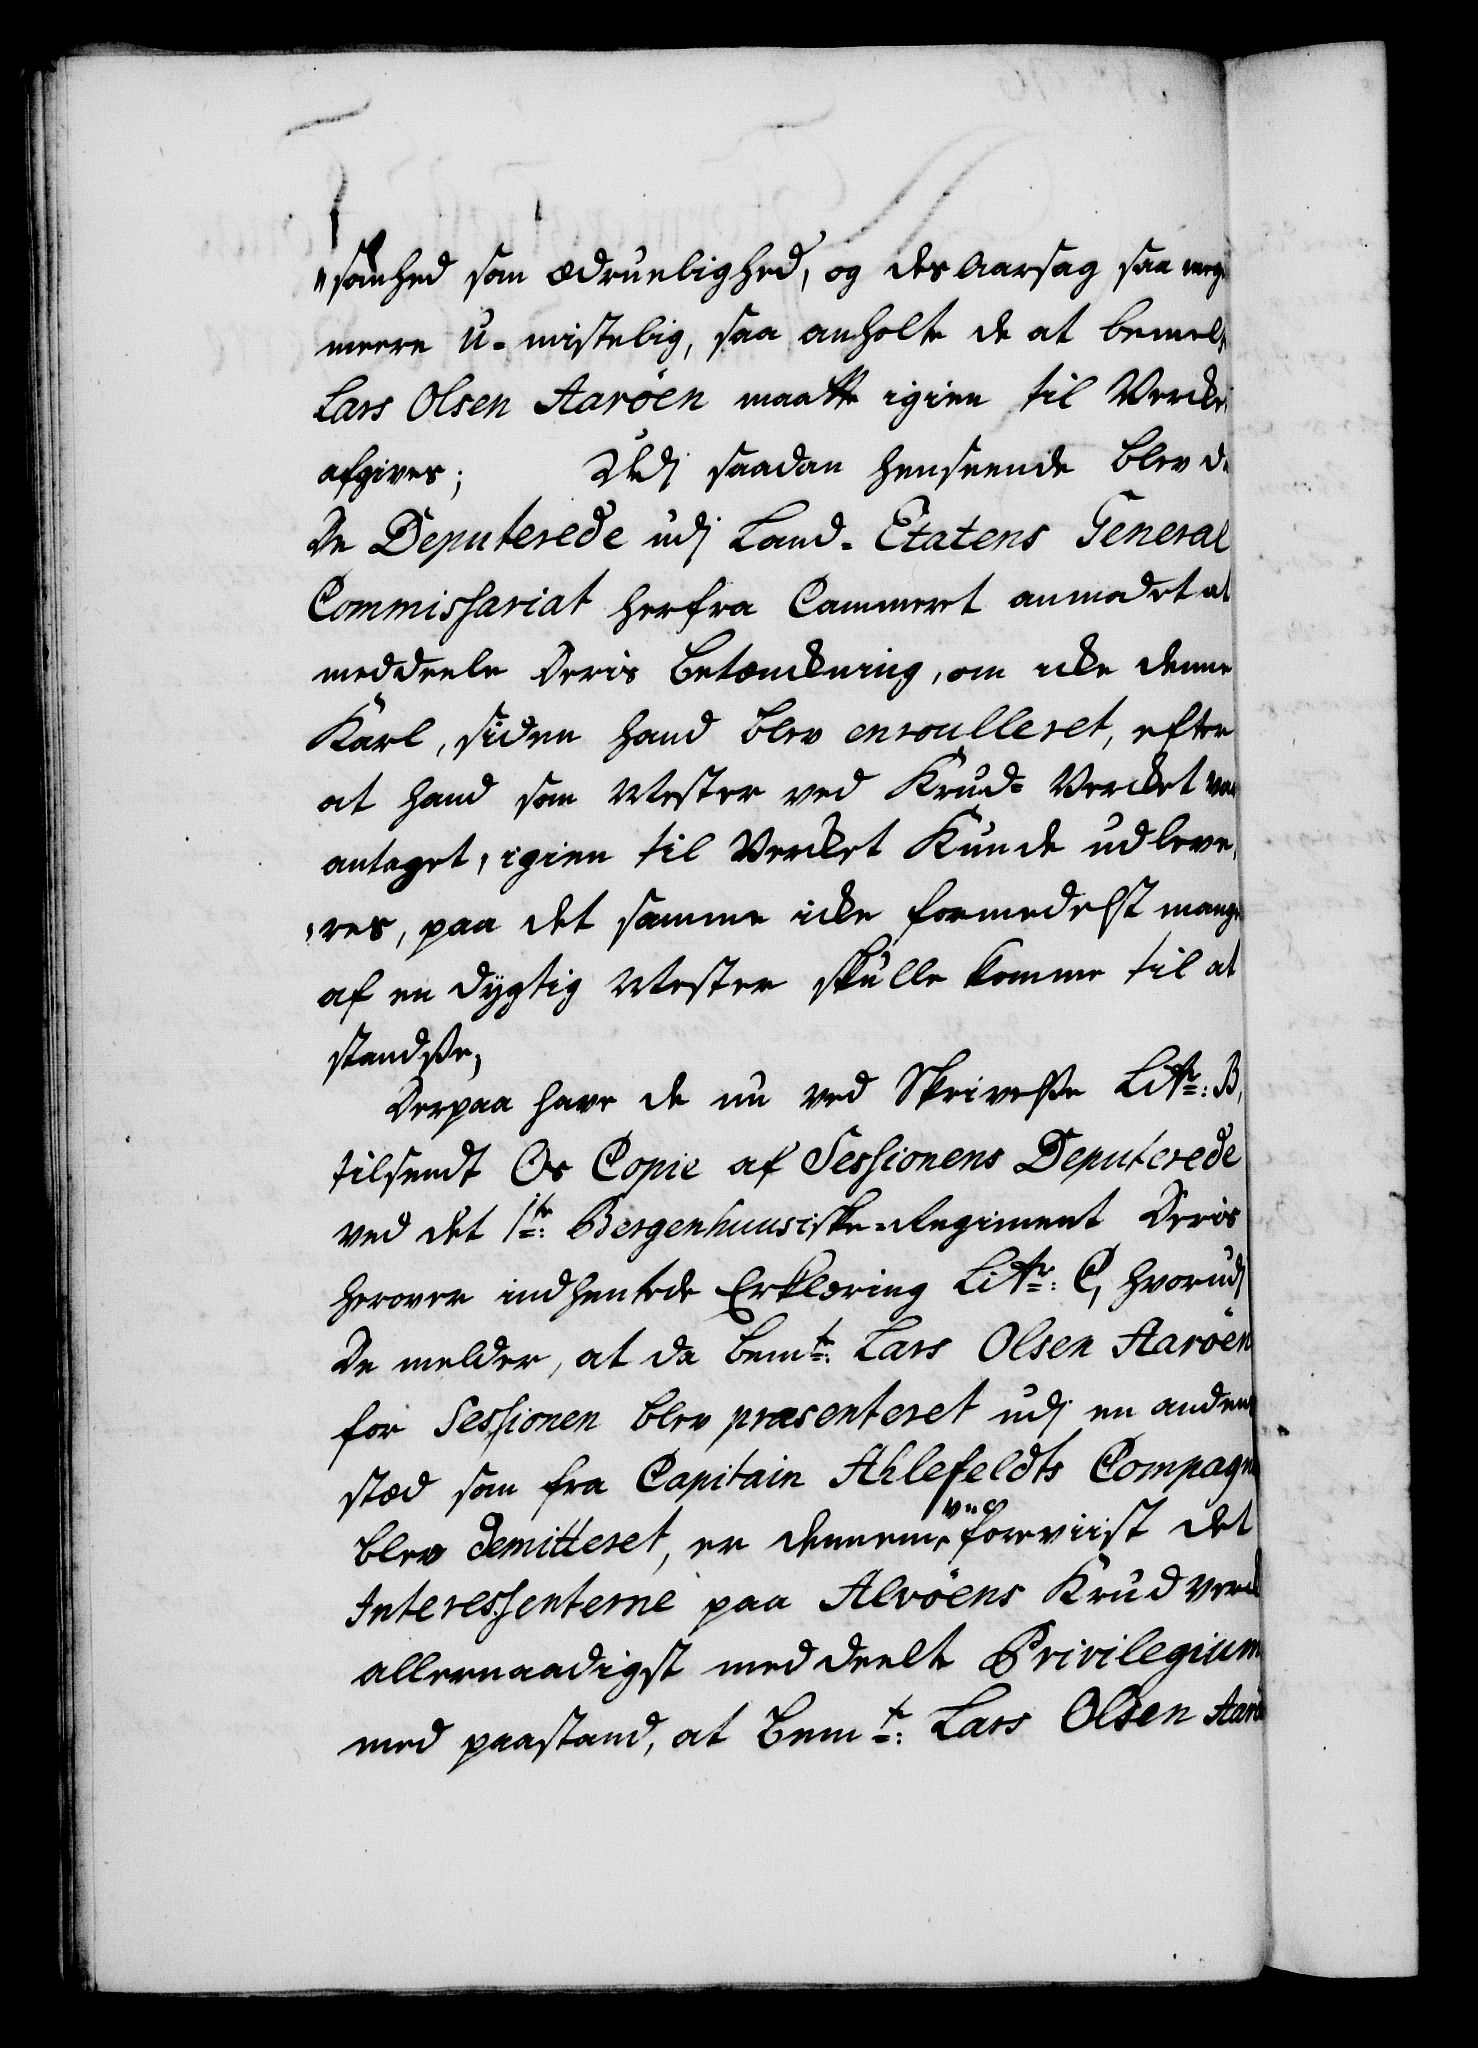 "somhed som ædruelighed, og des Aarsag saa meget
meere u-mistelig, saa anholte de at bemelte
Lars Olsen Aaröen maatte igien til Verket
afgives; Udj saadan henseende blev de
De Deputerede udj Land-Etatens General
Commissariat herfra Cammeret anmodet at
meddeele Deris betænckning, om icke denne
Karl, siden hand blev enroulleret, efter
at hand som Mester ved Krud-Vercket var
antaget, igien til Vercket Kunde udleve,
,res, paa det samme icke formedelst mangel
af en dygtig Mester skulle komme til at
standsse,
Derpaa have de nu ved Skrivelsse Littr: B,
tilsendt Os Copie af Sessionens Deputerede
ved det 1te: Bergenhuusiske-Regiment Deris
herover indhentede Erklæring Littr: C, hvorudj
De melder, at da bemte: Lars Olsen Aaröen
for Sessionen blev præsenteret udj en anden
stæd som fra Capitain Ahlefeldts Compagnie
blev demitteret, er dennem ved foreviist det
Interessenterne paa Alvöens Krudverck
allernaadigst meddeelte Privilegium
med paastand, at Bemte: Lars Olsen Aaröen